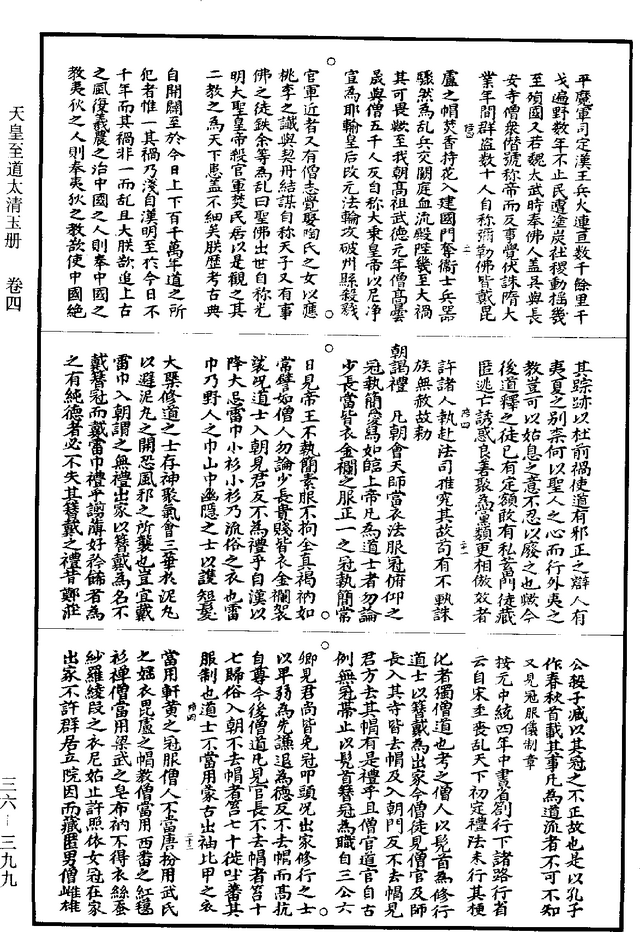 平魔軍司定漢王兵火連亘數千餘里干
戈遍野數年不止民遭塗炭社稷動搖幾
至殞國又若魏太武時奉佛人蓋吳與長
安寺僧衆階號稱帝而反事覺伏誅隋大
業年間群盜數十人自稱彌勒佛皆戴毘
盧之帽焚香持花入建國門奪衛士兵器
騷然為乱兵交闕庭血流殿陛幾至大禍
其可畏歟至我朝髙祖武德元年僧髙曇
晟與僧五千人反自称大乗皇帝以尼净
宣為耶輸皇后改元法輪攻破州縣殺戮
官軍近者又有僧志覺娶陶氏之女以應
桃李之讖與契丹結謀自称天子又有事
佛之徒鉄余等為乱曰聖佛出世自称光
明大聖皇帝殺官軍焚民居以是觀之其
二教之為天下患盖不細矣朕歷考古典
自開闢至於今日上下百千萬年道之所
犯者惟一其禍乃淺自漢明至扵今日不
千年而其禍非一而乱且大朕欲追上古
之風復羲農之治中國之人則奉中國之
教夷狄之人則奉夷狄之教欲使中國絶
其踪跡以杜前禍使道有邪正之辯人有
夷夏之别柰何以聖人之心而行外夷之
教豈可以始息之意不忍以廢之也歟今
後道釋之徒已有定額敢有私畜門徒蔵
匿逃亡誘惑良善聚為黨類更相倣效者
許諸人執赴法司推究其故苟有不軌誅
族無赦故勑
朝謁禮 凡朝會天師當衣法服冠俯仰之
冠執簡冩如舘上帝凡為道士者勿論
少長當皆衣金襴之服正一之冠執簡常
日見帝王不執簡素服不拘全真褐衲如
常譬如僧人勿論少長貴賤皆衣金襴袈
裟况道士入朝見君反不為禮乎自漢以
降大忌雷巾小衫小衫乃流俗之衣也雷
巾乃野人之巾山中幽隠之士以護短髮
大槩修道之士存神聚氣會三華扵泥丸
以避泥丸之開恐風邪之所襲也豈宜戴
雷巾入朝謂之無禮出家以簪戴為名不
戴簪冠而戴雷巾禮乎謭薄好矜飾者為
之有純德者必不失其簪戴之禮昔鄭莊
公殺子臧以其冠之不正故也是以孔子
作春秋首載其事凡為道流者不可不知
又見冠服儀制章
按元中統四年中書省劄行下諸路行省
云自宋至丧乱天下初定禮法未行其梗
化者獨僧道也考之僧人以髠首為修行
道士以簪戴為出家今僧徒見僧官及師
長入其寺皆去帽及入朝門反不去帽見
君方去其帽有是禮乎且僧官道官自古
例無冠帶止以髠首簪冠為職自三公六
卿見君尚皆免冠叩頭况出家修行之士
以卑弱為先謙退為德反不去帽而髙抗
自尊今後僧道凡見官長不去帽者笞十
七歸俗入朝不去帽者笞七十徙吐蕃其
服制也道士不當用蒙古出袖比甲之衣
當用軒黄之冠服僧人不當唐枌用武氏
之媱衣毘盧之帽教僧當用西畨之紅氊
衫禅僧當用梁武之皂布衲不得衣絲蚕
紗羅綾段之衣尼姑止許照依女冠在家
出家不許群居立院因而蔵匿男僧雌雄
天皇至道太清玉册 卷四
三六—三九九